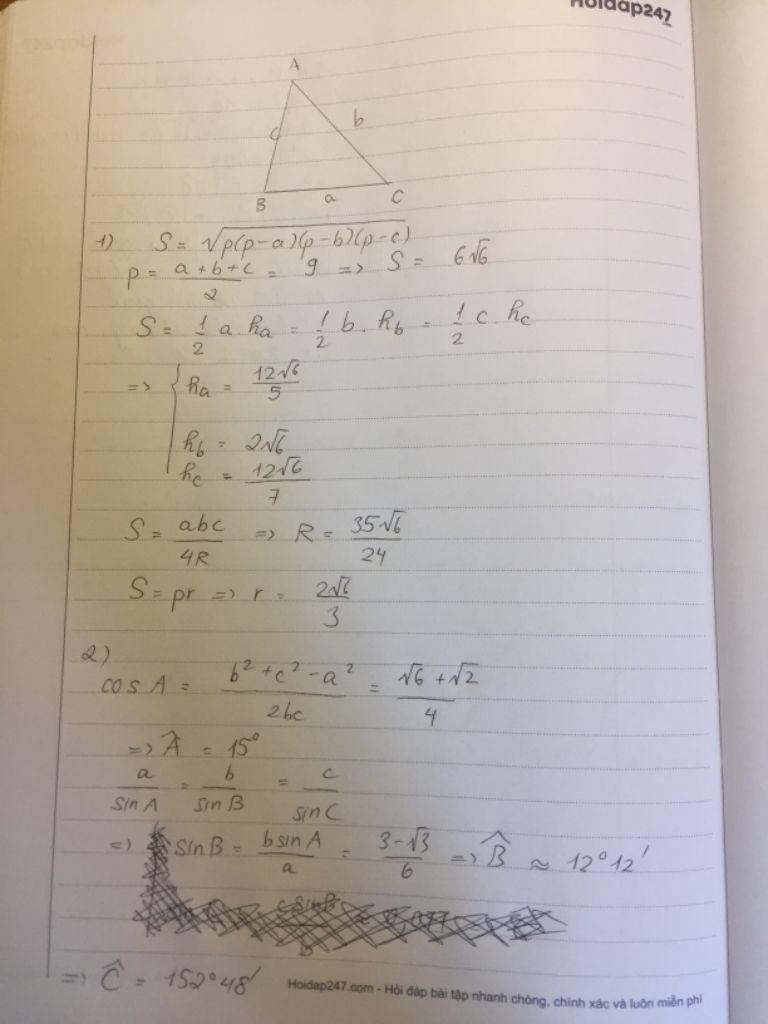 Hoidap247
A
c
b
B
a
C
1) S = √p(p-a)(p-b)(p-c)
p = a+b+c/2 = 9 => S = 6√6
S = 1/2 a.ha = 1/2 b.hb = 1/2 c hc
=> { ha = 12√6/5
hb = 2√6
hc = 12√6/7
S = abc/4R => R = 35√6/24
S = pr => r = 2√6/3
2)
cos A = b²+c²-a²/2bc = √6+√2/4
=> Â = 15°
a/sin A = b/sin B = c/sin C
=> sin B = b sin A/a = 3-√3/6 => B̂ ≈ 12°12'
=> Ĉ = 152°48'
Hoidap247.com - Hỏi đáp bài tập nhanh chóng, chính xác và luôn miễn phí